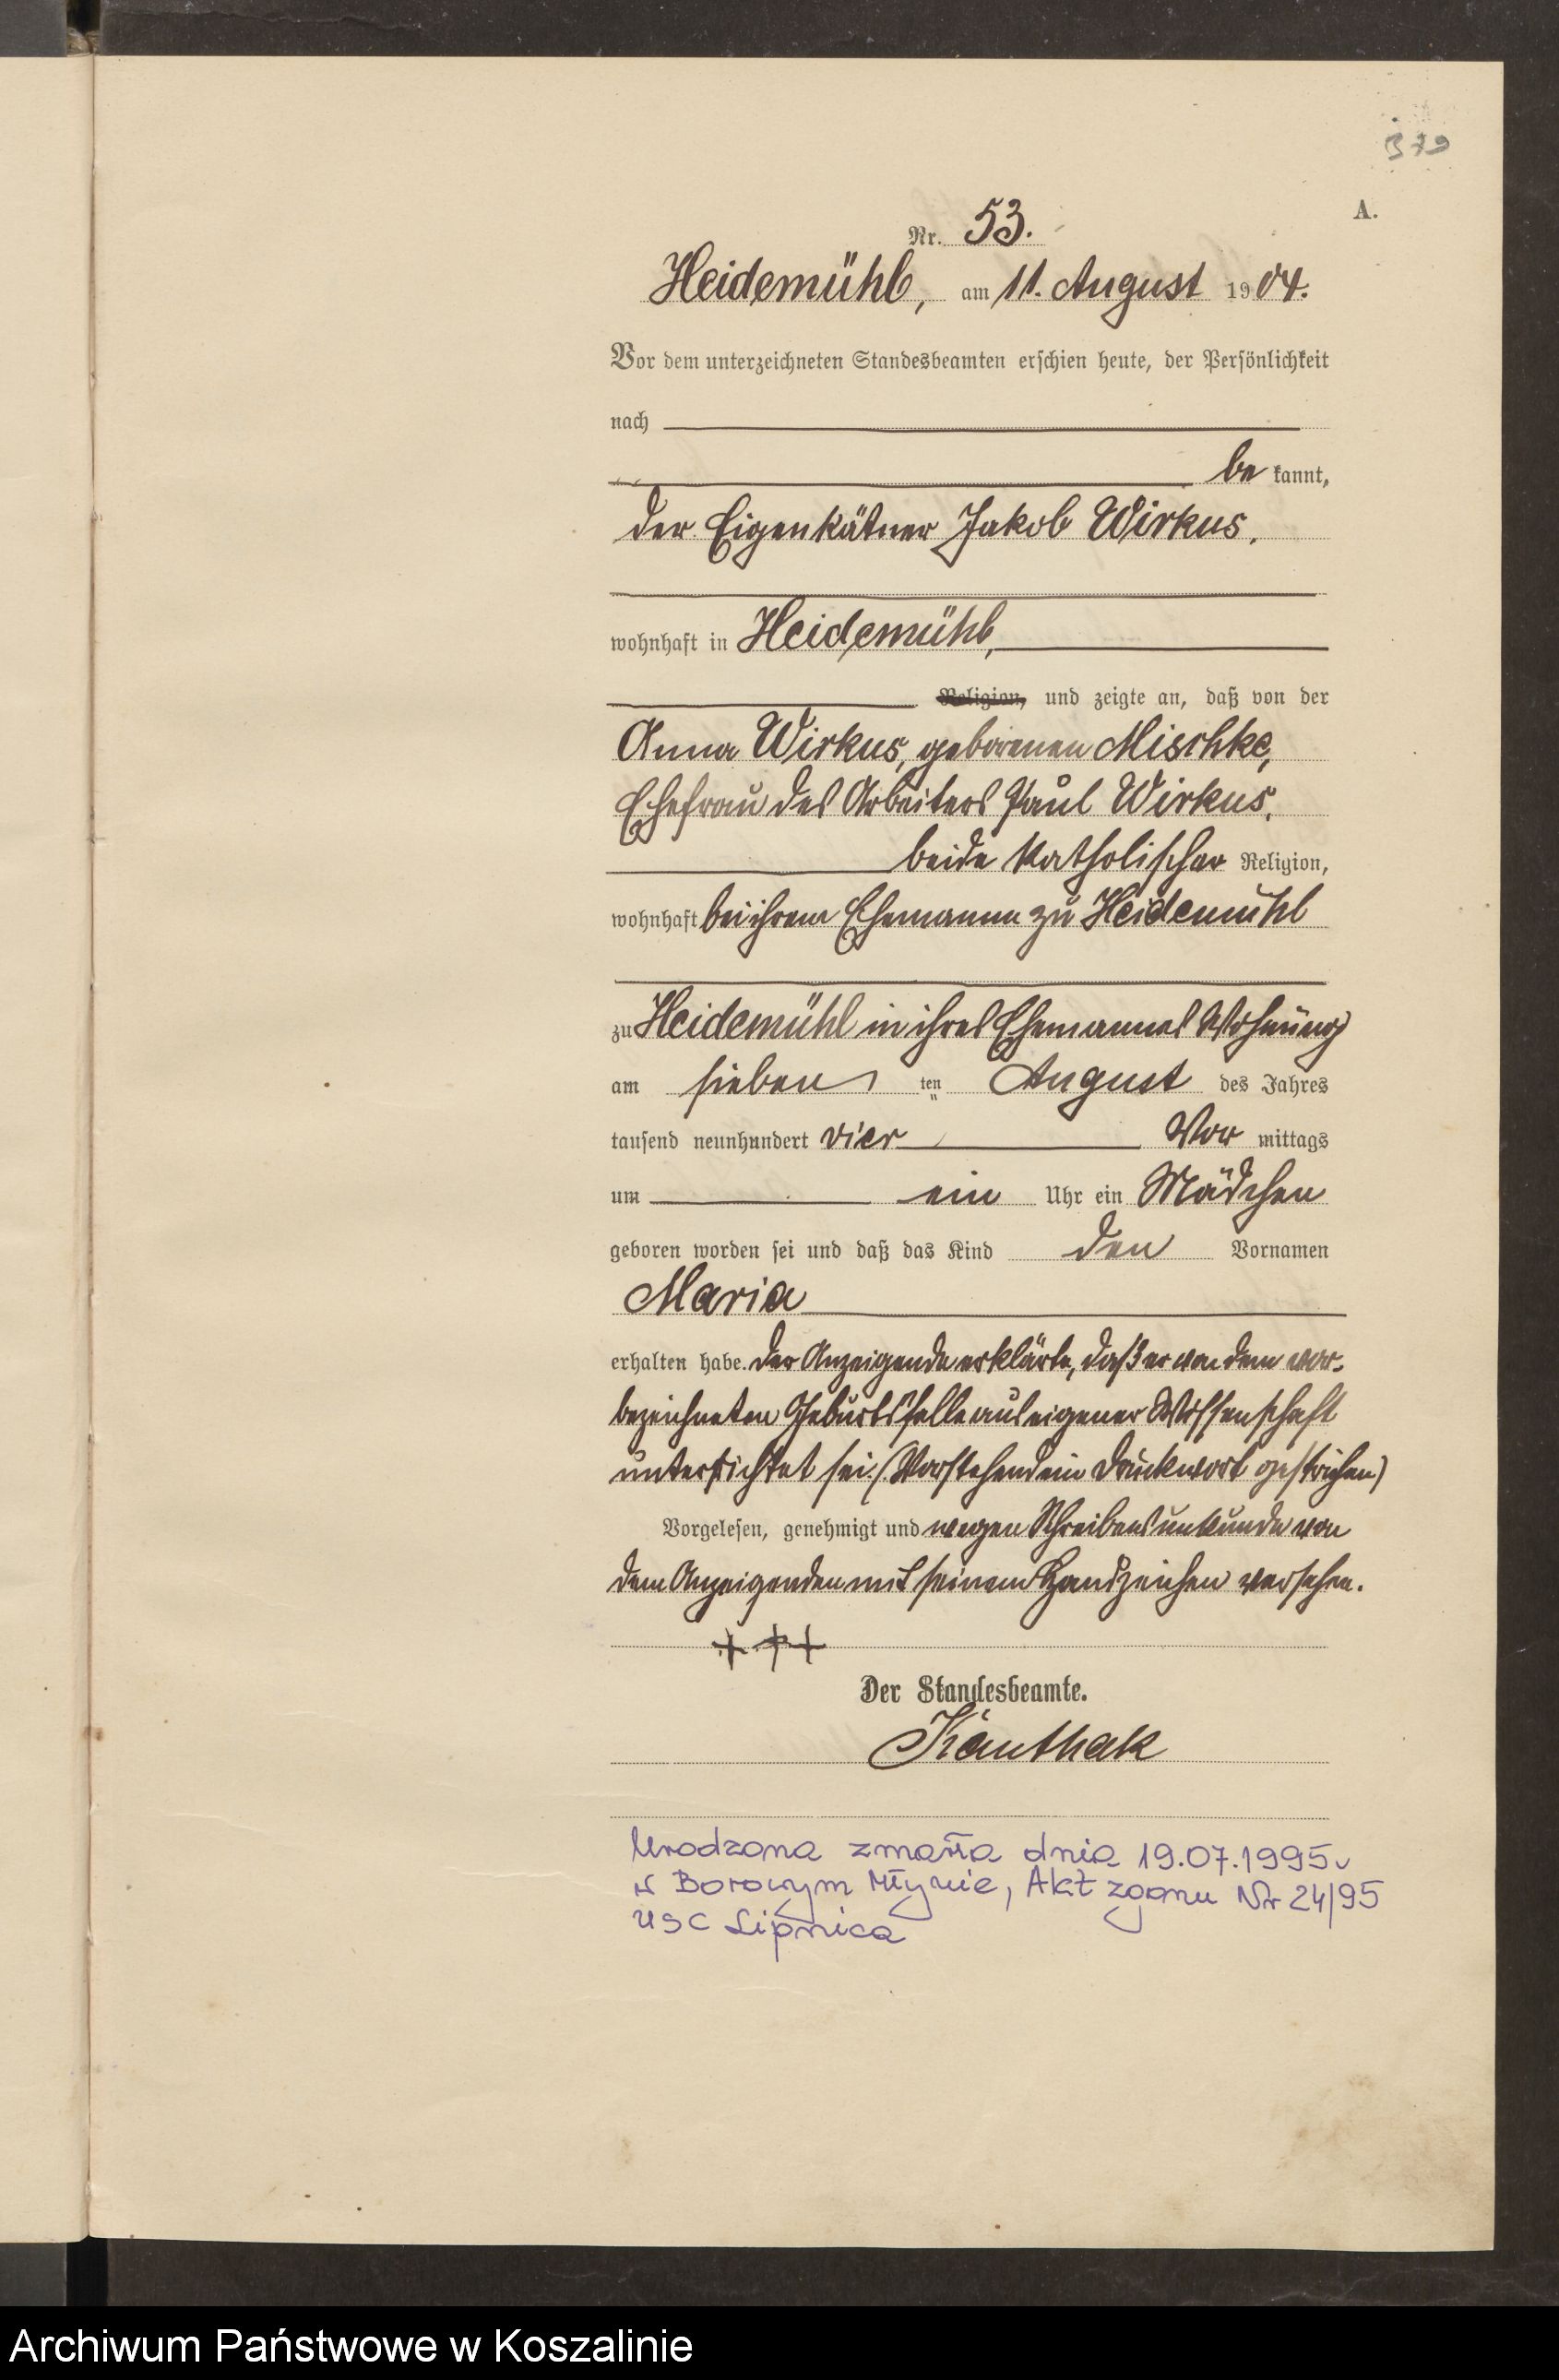 379
A.
Nr. 53.
Heidemühl, am 11. August 1904.
Vor dem unterzeichneten Standesbeamten erschien heute, der Persönlichkeit
nach
be kannt,
der Eigenkätner Jakob Wirkus,
wohnhaft in Heidemühl,
Religion, und zeigte an, daß von der
Anna Wirkus, geborenen Mischke,
Ehefrau des Arbeiters Paul Wirkus,
beide katholischer Religion,
wohnhaft bei ihrem Ehemanne zu Heidemühl
zu Heidemühl in ihres Ehemannes Wohnung
am sieben ten August des Jahres
tausend neunhundert vier Vor mittags
um ein Uhr ein Mädchen
geboren worden sei und daß das Kind den Vornamen
Maria
erhalten habe. Der Anzeigende erklärte, daß er von dem vor-
bezeichneten Geburtsfalle aus eigener Wissenschaft
unterrichtet sei. (Vorstehend ein Druckwort gestrichen)
Vorgelesen, genehmigt und wegen Schreibensunkunde von
dem Anzeigenden mit seinem Handzeichen versehen.
+ + +
Der Standesbeamte.
Kanthak
Urodzona zmarła dnia 19.07.1995r
w Borowym Młynie, Akt zgonu Nr 24/95
USC Lipnica
Archiwum Państwowe w Koszalinie